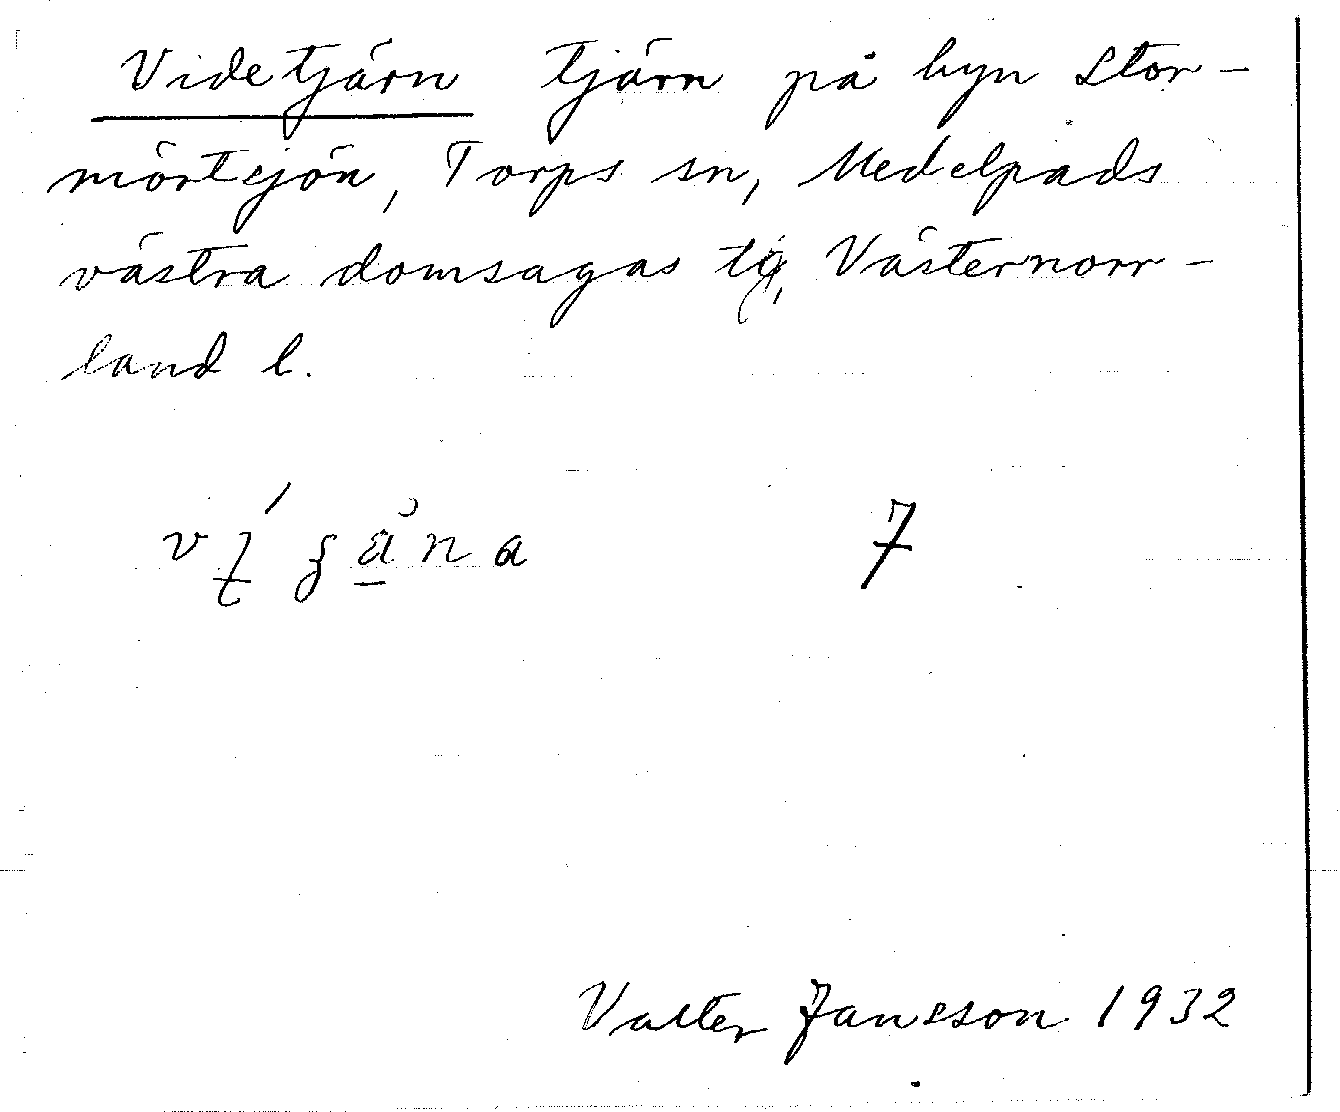 Videtjärn tjärn på byn Stor-
mörtsjön, Torps sn, Medelpads
västra domsagas tg, Västernorr-
land l.
7
Valter Jansson 1932